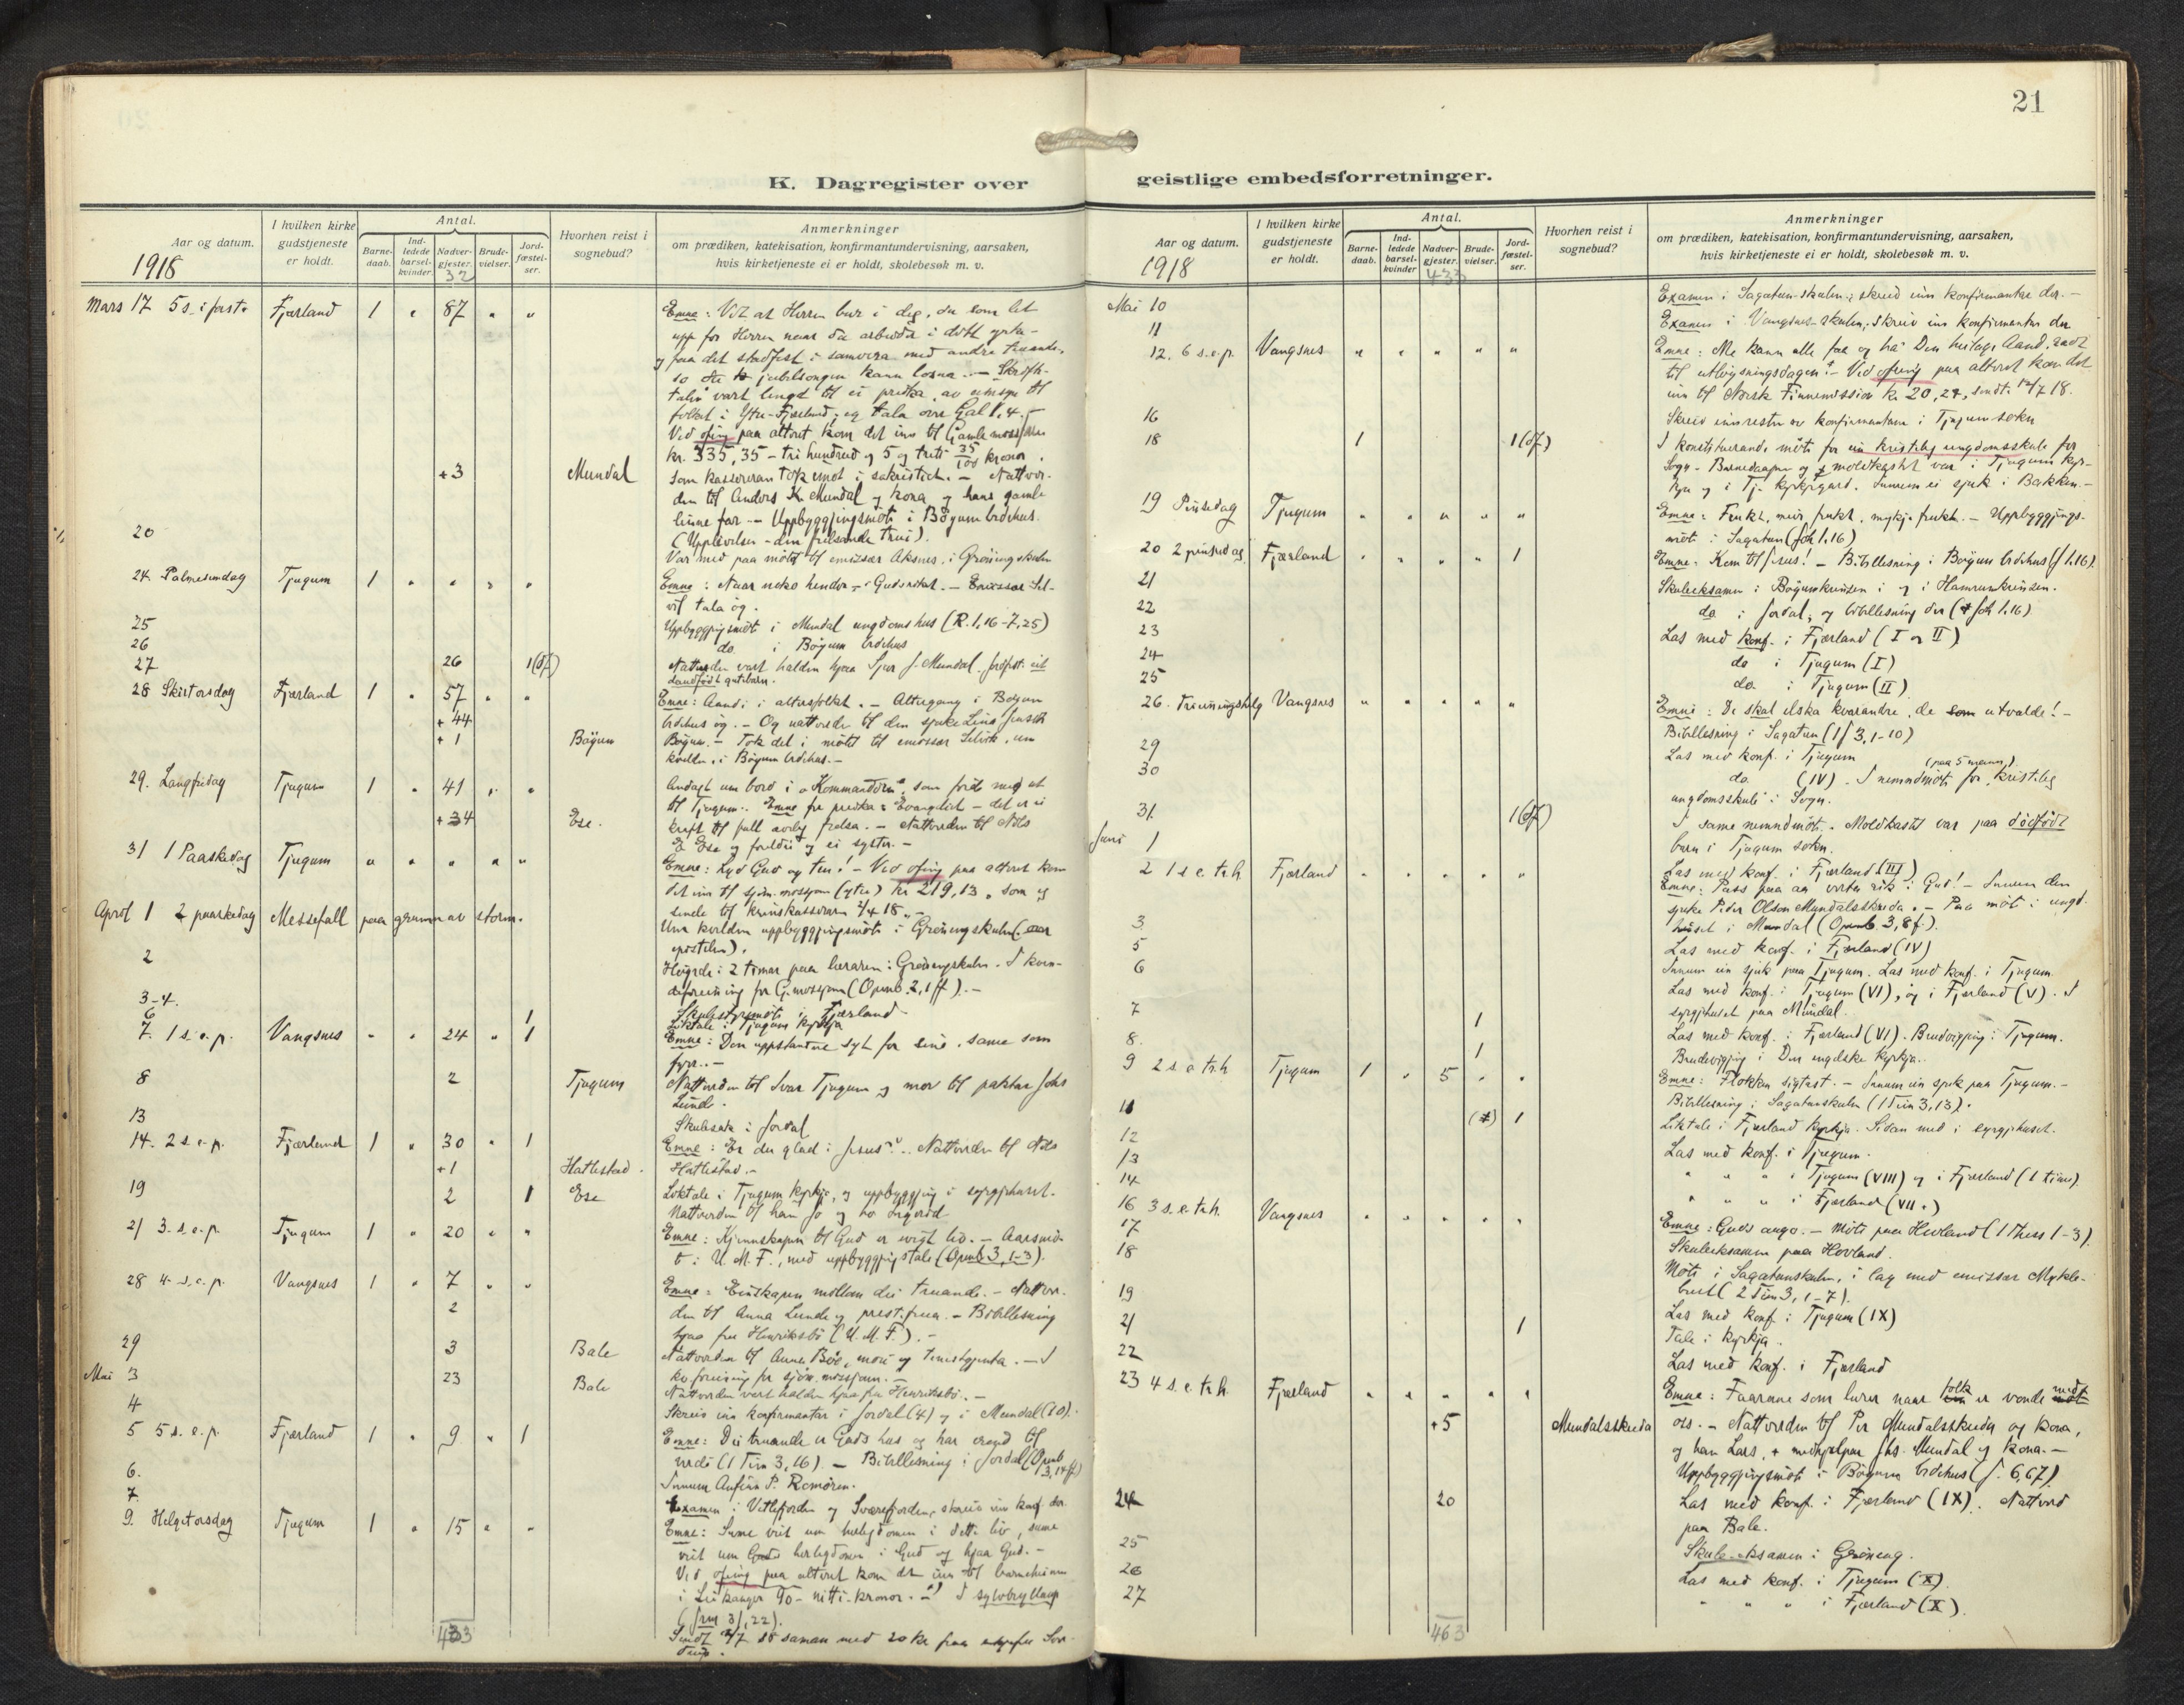 21
K. Dagregister over geistlige embedsforretninger.
Aar og datum.
1918
I hvilken kirke gudstjeneste er holdt.
Antal.
Barne-daab.
Ind-ledede barsel-kvinder.
Nadver-gjester.
32
Brude-vielser.
Jord-fæstel-ser.
Hvorhen reist i sognebud?
Anmerkninger
om prædiken, katekisation, konfirmantundervisning, aarsaken,
hvis kirketjeneste ei er holdt, skolebesøk m. v.
Mars 17 5 s. i fast. Fjærland 1 " 87 " " Emne: Vit at Herren bur i deg, du som let
upp for Herren naar du arbeider i ditt yrke -
og faa det stadfest i samvera med andre truande,
so at jubelsongen kann losna. - Skrift-
talin vart lengd til ei preika, av umsyn til
folket i Ytre-Fjærland; eg tala over Gal 1, 4. -
Ved ofring paa altaret kom det inn til Gamlemosjonen
kr. 335,35 - tri hundrad og 5 og tretti 35/100 kronor.
+3 Mundal som kasseraren tok imot i sakristiet. - Nattver-
den til Anders K. Mundal og kona og hans gamle
blinne far. - Uppbyggjingsmøte i Bøyum bedehus.
(Upplevelse - den frelsande trui).
20 Var med paa møtet til emissær Aksnes, i Grøningskulen
24 Palmesundag Tjugum 1 " " " " Emne: Naar neko hender i Guds rike. - Emissær Sel-
vik tala òg.
25 Uppbyggjingsmøte i Mundal ungdomshus (R. 1,16-7,25)
26 do. i Bøyum bedehus
27 26 1(df) Nattverden vart halden hjaa Sjur J. Mundal. Jordfest. eit
daudfødt gutebarn.
28 Skirtorsdag Fjærland 1 " 57 " " Emne: Aand i altarfolket. - Altargang i Bøyum
+ 44 bedehus òg. - Og nattverd til den sjuke Lina Jensdt.
+ 1 Bøyum Bøyum. - Tok del i møtet til emissær Selvik, um
kvelden, i Bøyum bedehus. -
29. Langfredag Tjugum 1 " 41 " " Andagt um bord i "Kommandøren", som førde meg ut
til Tjugum. Emne for preika: Evangeliet - det er ei
+34 Ese. kraft til full ævleg frelsa. - Nattverden til Nils
E. Ese og foreldre og ei syster. -
31 1 Paaskedag Tjugum " " " " " Emne: Lyd Gud og tru! - Ved ofring paa altaret kom
det inn til sjøm.mosjonen (ytre) kr 219,13, som eg
sende til krinskasseraren 2/4 18. -
April 1 2 paaskedag Messefall paa grunn av storm. Um kvelden uppbyggjingsmøte i Grøningskulen
epistelen).
2 Høyrde i 2 timar paa læraren i Grøningskulen. I kvin-
deforening for G. mosjonen (Openb. 2, 1 ff). -
3-4. Skulestyremøte i Fjærland
6 1 Liktale i Tjugum kyrkja
7. 1 s. e. p. Vangsnes " " 24 " 1 Emne: Den uppstandne syt for sine. same som
fyrr. -
8 2 Tjugum Nattverden til Ivar Tjugum og mor til paktar Johs
Lunde.
13 Skulesak i Jordal
14. 2 s. e. p. Fjærland 1 " 30 " 1 Emne: Er du glad i Jesus? - Nattverden til Nils
+1 Hatlestad. Hatlestad. -
19 2 1 Ese Liktale i Tjugum kyrkja, og uppbyggjing i syrgjehuset.
Nattverden til han Jo og ho Ingerid
21 3. s. e. p. Tjugum 1 " 20 " " Emne: Kjennskapen til Gud er evigt liv. - Aarsmø-
te i U. M. F., med uppbyggjingstale (Openb 3, 1-3).
28 4. s. e. p. Vangsnes 1 " 7 " " Emne: Einskapen mellom dei truande. - Nattver-
2 den til Anna Lunde og prest.frua. - Bibellesning
hjaa fru Henriksbø (U. M. F.). -
29 3 Bale Nattverden til Anna Bøe, mori og tenestgjenta. - I
kv.forening for sjøm.mosjonen. -
Mai 3 23 Bale Nattverden vart halden hjaa fru Henriksbø. -
4 Skreiv inn konfirmantar i Jordal (4) og i Mundal (10).
5 5 s. e. p. Fjærland 1 " 9 " 1 Emne: Dei truande er Guds hus og har ansvar til
verdi (1 Tim 3, 16). - Bibellesning i Jordal (Openb
3, 14 ff)
6. Innum Anfinn P. Romøren.
7. Examen i Vetlefjorden og Sværefjorden; skreiv inn konf. der.
9. Helgetorsdag Tjugum 1 " 15 " " Emne: Sume veit um herlegdomen i dette liv, sume
veit um herlegdomen i Gud og hjaa Gud. -
Ved ofring paa altaret kom det inn til barneheimen
i Leikanger 90 - nitti - kronor. - I sylvbryllaup
(Jrm 31, 22).
Sendt 2/7 18 saman med 20 kr fraa
433
Aar og datum.
1918
I hvilken kirke gudstjeneste er holdt.
Antal.
Barne-daab.
Ind-ledede barsel-kvinder
Nadver-gjester.
433
Brude-vielser.
Jord-fæstel-ser.
Hvorhen reist i sognebud?
Anmerkninger
om prædiken, katekisation, konfirmantundervisning, aarsaken,
hvis kirketjeneste ei er holdt, skolebesøk m. v.
Mai 10 Examen i Sagatun-skulen; skreiv inn konfirmantar der. -
11 Examen i Vangsnes-skulen; skreiv inn konfirmantar der
12. 6 s. e. p. Vangsnes " " " " " Emne: Me kann alle faa og ha Den heilage Aand,
til utløysningsdagen. - Ved ofring paa altaret kom det
inn til Norsk Finnemission kr. 20,27, sendt 14/7 18.
16 Skreiv inn resten av konfirmantane i Tjugum sokn
18 1 1(df) I konstituerande møte for ein kristeleg ungdomsskule for
Sogn. Barnedaapen og moldkastet var i Tjugum kyr-
kja og i Tj. kyrkjegard. Innum ei sjuk i Bakken. -
19 Pinsedag Tjugum " " " " " Emne: Frukt, meir frukt, mykje frukt. - Uppbyggjings-
møte i Sagatun (Joh 1.16)
20 2 pinsedag Fjærland " " " " 1 Emne: Kom til Jesus! - Bibellesning i Bøyum bedehus (J 1.16).
21 Skuleeksamen i Bøyumkrinsen i og i Hamrumkrinsen.
22 do i Jordal, og bibellesning der (Joh 1.16)
23 Las med konf. i Fjærland (I og II)
24 do i Tjugum (I)
25 do. i Tjugum (II)
26. Treeiningshelg Vangsnes " " " " " Emne: De skal elska kvarandre, de som utvalde! -
Bibellesning i Sagatun (1 J 3, 1-10)
29 Las med konf. i Tjugum
30 do. (IV). I nemndmøte (paa 5 mann) for "kristeleg
ungdomsskule" i Sogn.
31. 1(df) I same nemndmøte. Moldkastet var paa dødfødt
barn i Tjugum sokn.
Juni 1 Las med konf. i Fjærland (III)
2 1 s. e. tr.h. Fjærland " " " " " Emne: Pass paa aa verta rik i Gud! - Innum den
sjuke Peder Olson Mundalsskreda. - Paa møte i ungd.
huset i Mundal (Openb. 3, 8 f.).
3. Las med konf. i Fjærland (IV)
5 Innum ein sjuk paa Tjugum. Las med konf. i Tjugum.
6 Las med konf. i Tjugum (VI), og i Fjærland (V). I
syrgjehuset paa Mundal.
7 1 Las med konf. i Fjærland (VI). Brudvigjing i Tjugum.
8. 1 Brudevigjing i Den engelske kyrkja.
9 2 s. e. tr.h. Tjugum 1 " 5 " " Emne: Flokken sigtast. - Innum ein sjuk paa Tjugum. -
Bibellesning i Sagatunskulen (1 Tim 3, 13).
11 1 Liktale i Fjærland kyrkja. Sidan med i syrgjehuset.
12 Las med konf. i Tjugum.
13 " " " i Tjugum (VIII) og i Fjærland (1 time).
14 " " " i Fjærland (VII.)
16 3 s. e. tr.h. Vangsnes " " " " " Emne: Guds augo. - Møte paa Hovland (1 Thess 1-3).
17 Skuleeksamen paa Hovland.
18 Møte i Sagatunskulen, i lag med emissær Mykle-
bust (2 Tim 3, 1-7).
19 Las med konf. i Tjugum (IX)
21 1 Tale i kyrkja.
22 Las med konf. i Fjærland
23 4 s. e. tr.h. Fjærland " " " " " Emne: Faarene som lurer naar folk er vonde med
+5 Mundalsskreda oss. - Nattverden til Per Mundalsskreda og kona,
og han Lars, + medhjelpar Johs. Mundal og kona. -
Uppbyggjingsmøte i Bøyum bedehus (J. 6,67).
24 20 Las med konf. i Fjærland (IX). Nattverd
paa Bale.
25 Skule-eksamen i Grøneng.
26 Las med konf. i Tjugum (X).
27 " " " i Fjærland (X).
463